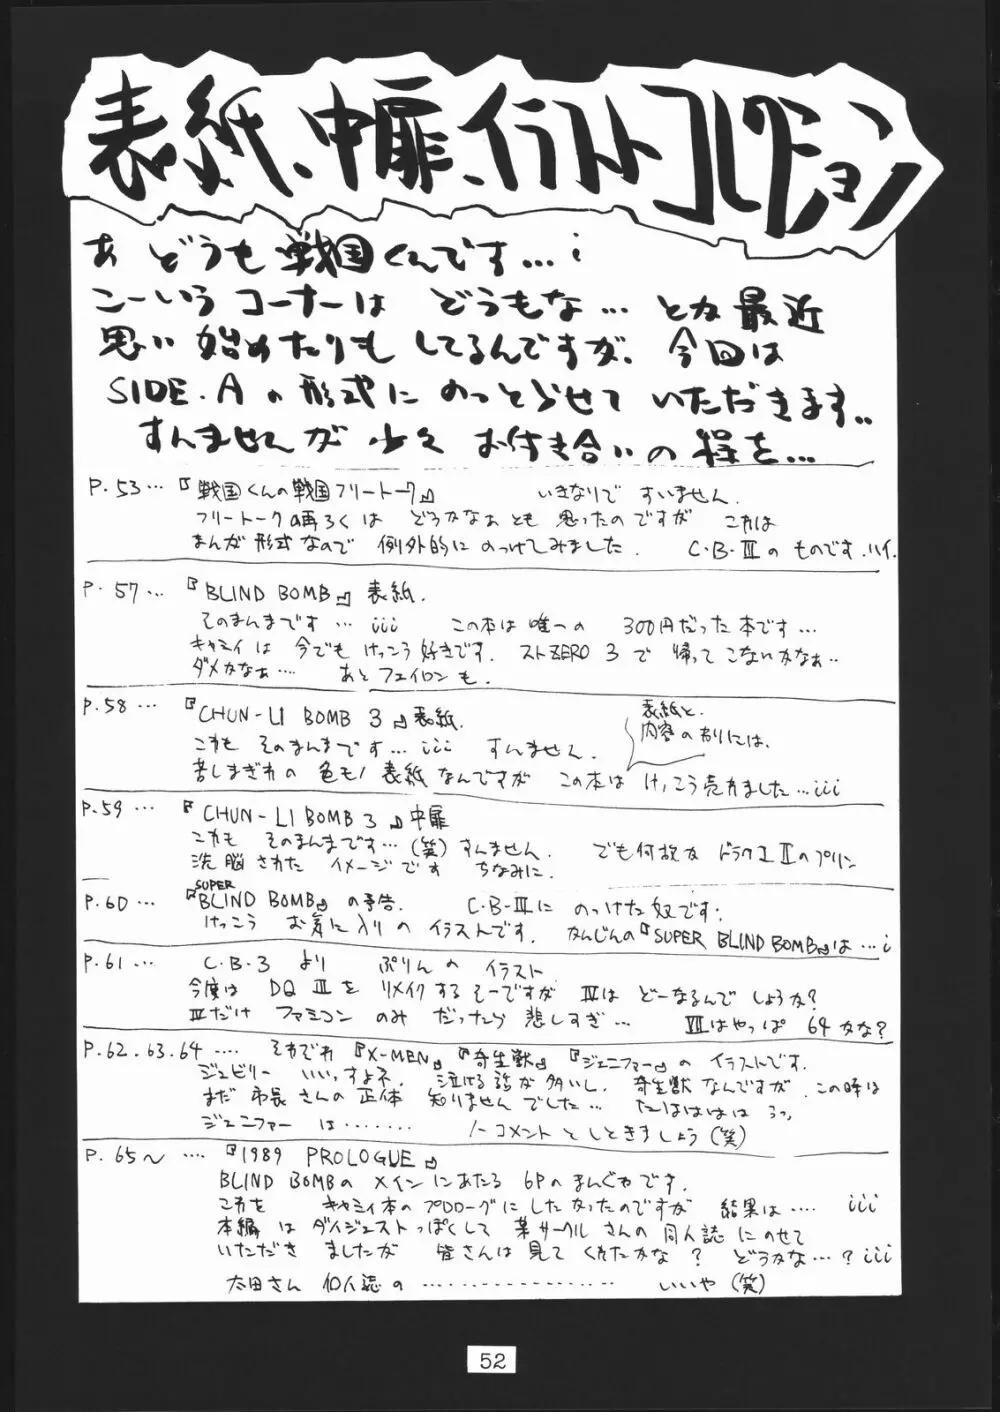 表紙、中扉、イラストコレクション
あ どうも戦国くんです…i
こーいうコーナーは どうもな… とか最近
思い始めたりもしてるんですが、今回は
SIDE.Aの形式にのっとらせていただきます..
すんませんが少々お付き合いの程を…
P.53… 『戦国くんの戦国フリートーク』 いきなりですいません.
フリートークの再ろくは どうかなぁとも思ったのですが これは
まんが形式なので 例外的にのっけてみました. C・B・Ⅲのものです.ハイ.
P.57… 『BLIND BOMB』表紙.
そのまんまです…iii この本は唯一の 300円だった本です…
キャミィは今でもけっこう好きです. ストZERO3で帰ってこないかなぁ..
ダメかなぁ…. あとフェイロンも.
P.58… 『CHUN-LI BOMB 3』表紙.
これもそのまんまです…iii すんません.
苦しまぎれの色モノ表紙なんですが この本はけっこう売れました…iii
表紙と.
内容の割りには.
P.59… 『CHUN-LI BOMB 3』中扉
これも そのまんまです…(笑)すんません.
洗脳された イメージです ちなみに. でも何故かドラクエⅡのプリン
P.60… 『SUPER BLIND BOMB』の予告. C・B・Ⅲにのっけた奴です.
けっこうお気に入りのイラストです. かんじんの『SUPER BLIND BOMB』は…i
P.61… C・B・3より ぷりんのイラスト
今度は DQⅢをリメイクするそーですが Ⅳはどーなるんでしょうか?
Ⅳだけ ファミコンのみだったら悲しすぎ… Ⅶはやっぱ 64かな?
P.62.63.64…. それぞれ『X-MEN』『寄生獣』『ジェニファー』のイラストです.
ジュビリーいいっすよネ. 泣ける話が多いし. 寄生獣なんですが この時は
まだ市長さんの正体 知りませんでした… たはははは うっ,
ジェニファーは……. ノーコメントとしときましょう(笑)
P.65〜…. 『1989 PROLOGUE』
BLIND BOMBのメインにあたる6Pのまんがです.
これを キャミィ本のプロローグにしたかったのですが 結果は…. iii
本編はダイジェストっぽくして某サークルさんの同人誌にのせて
いただきましたが 皆さんは見てくれたかな? どうかな…?iii
太田さん 同人誌の………………… いいや(笑)
52